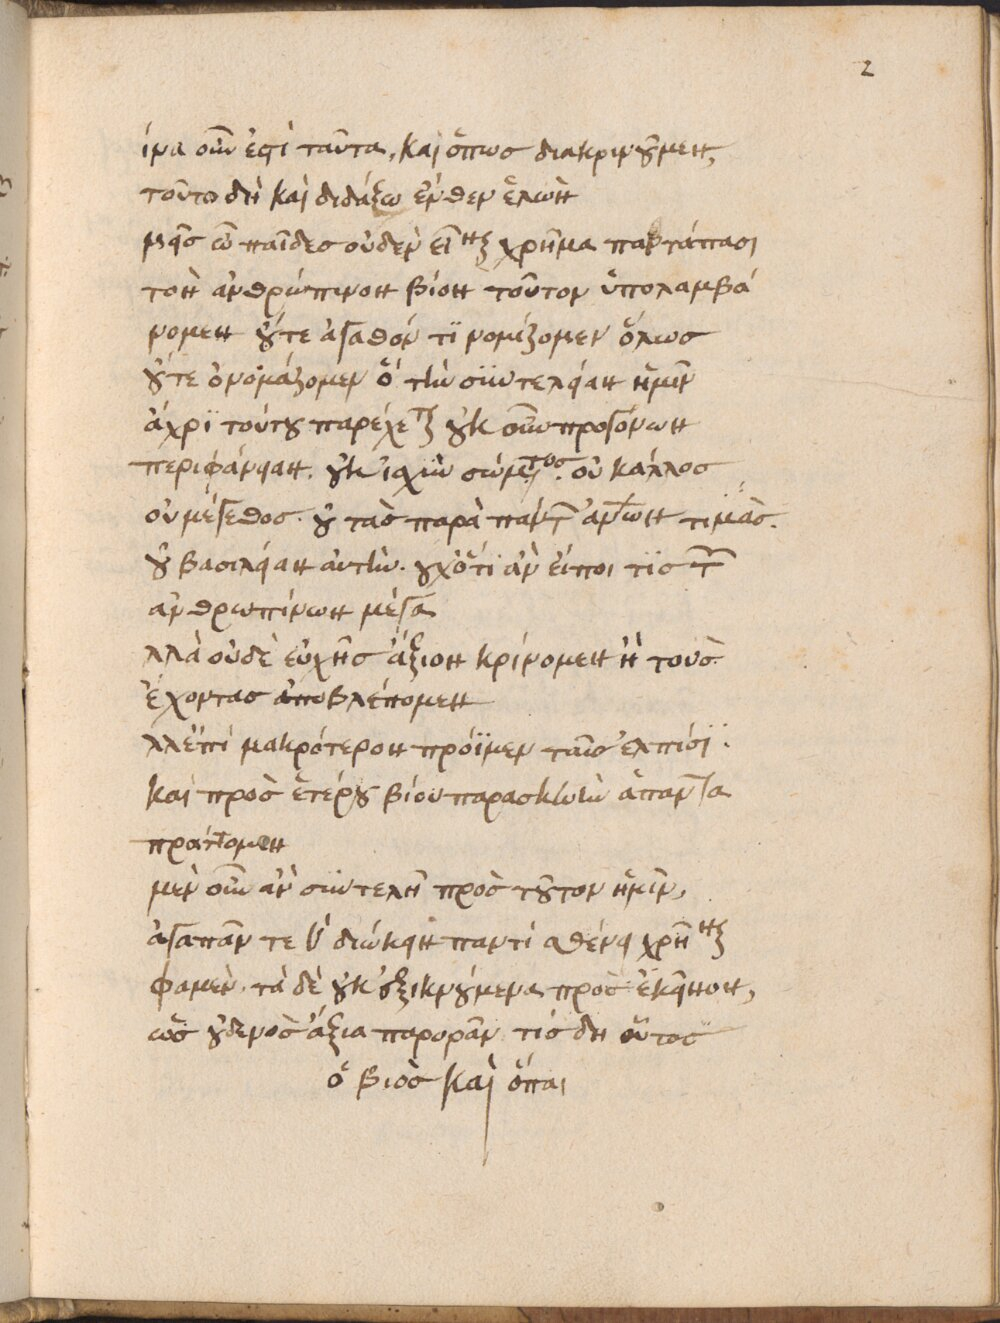 2
ίνα οὖν ἐστὶ ταῦτα, καὶ ὅπως διακρινοῦμεν,
τοῦτο δὴ καὶ διδάξω ἔνθεν ἑλών
μεῖς ὦ παῖδες οὐδὲν εἶναι χρῆμα παντάπασι
τὸν ἀνθρώπινον βίον τοῦτον ὑπολαμβά
νομεν οὔτε ἀγαθόν τϊ νομίζομεν ὅλως
οὔτε ὀνομάζομεν ὃ τὴν συντέλειαν ἡμῖν
ἄχρϊ τούτου παρέχεται οὐκ οὖν προγόνων
περιφάνειαν. οὐκ ἰσχὺν σώματος. οὐ κάλλος
οὐ μέγεθος. οὐ τὰς παρὰ πάντων ἀνων τιμάς.
οὐ βασιλείαν αὐτήν. οὐχ ὅτι ἂν εἴποι τϊς τῶν
ἀνθρωπίνων μέγα
λλὰ οὐδὲ εὐχῆς ἄξιον κρίνομεν ἢ τοὺς
ἔχοντας ἀποβλέπομεν
λλ' ἐπὶ μακρότερον πρόϊμεν ταῖς ἐλπίσϊ.
καὶ πρὸς ἑτέρου βίου παρασκευὴν ἅπαντα
πράττομεν
μὲν οὖν ἂν συντελῆ πρὸς τοῦτον ἡμῖν,
ἀγαπᾶν τε καὶ διώκειν παντὶ σθένει χρῆναι
φαμέν. τὰ δὲ οὐκ ἐξικνούμενα πρὸς ἐκεῖνον,
ὡς οὐδενὸς ἄξια παρορᾶν. τίς δὴ οὗτος
ὁ βιὸς καὶ ὅπαι